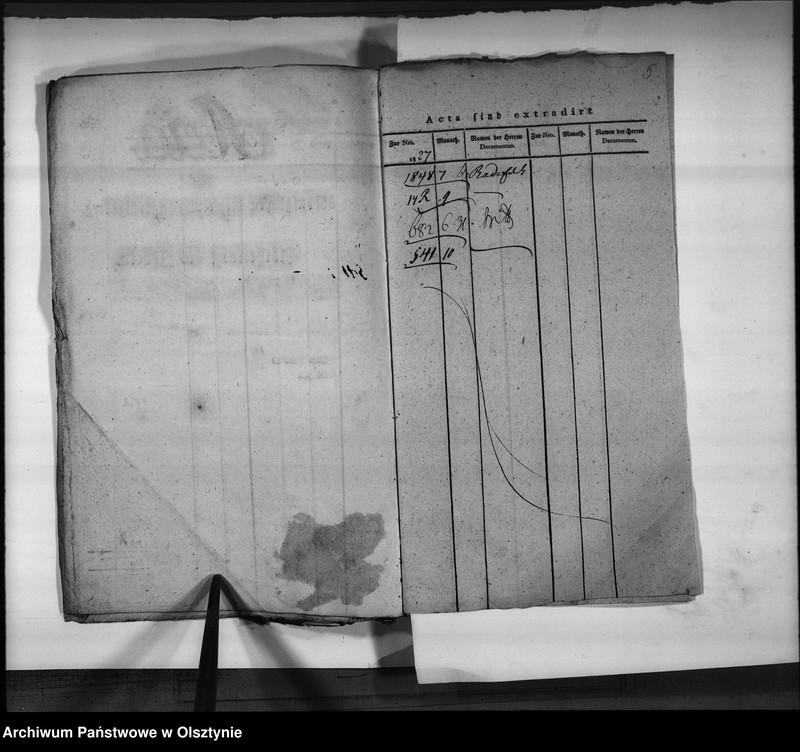 5
Acta sind extradirt
Zur Nro. Monath. Namen der Herren Decernenten. Zur Nro. Monath. Namen der Herren Decernenten.
1827
1848 7
14R 9
682 6
541 10
Archiwum Państwowe w Olsztynie